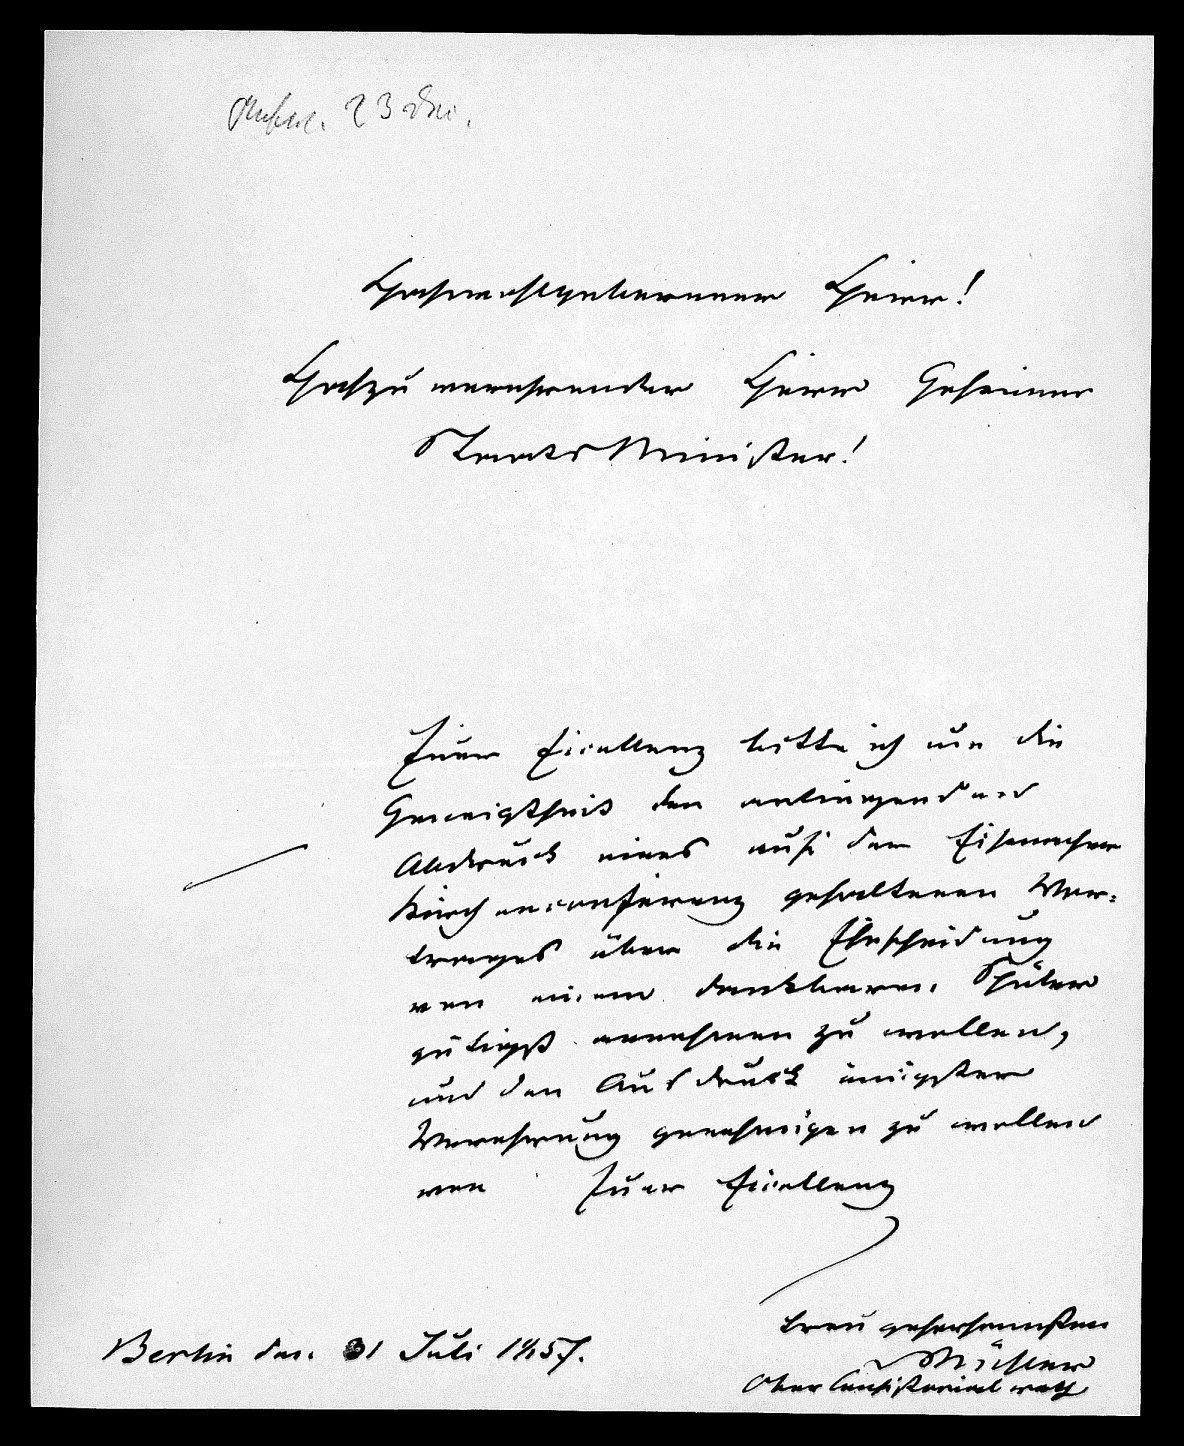 Hochwohlgeborener Herr!
Hochzuverehrender Herr Geheimer
Staats Minister!
Euer Excellenz bitte ich um die
Geneigtheit den anliegenden
Abdruck eines auf der Eisenacher
Kirchenconferenz gehaltenen Vor-
trages über die Ehescheidung
von einem dankbaren Schüler
gütigst annehmen zu wollen,
und den Ausdruck innigster
Verehrung genehmigen zu wollen
von Euer Excellenz
treu gehorsamsten
Ober Consistorial rath
Berlin den 31 Juli 1857.